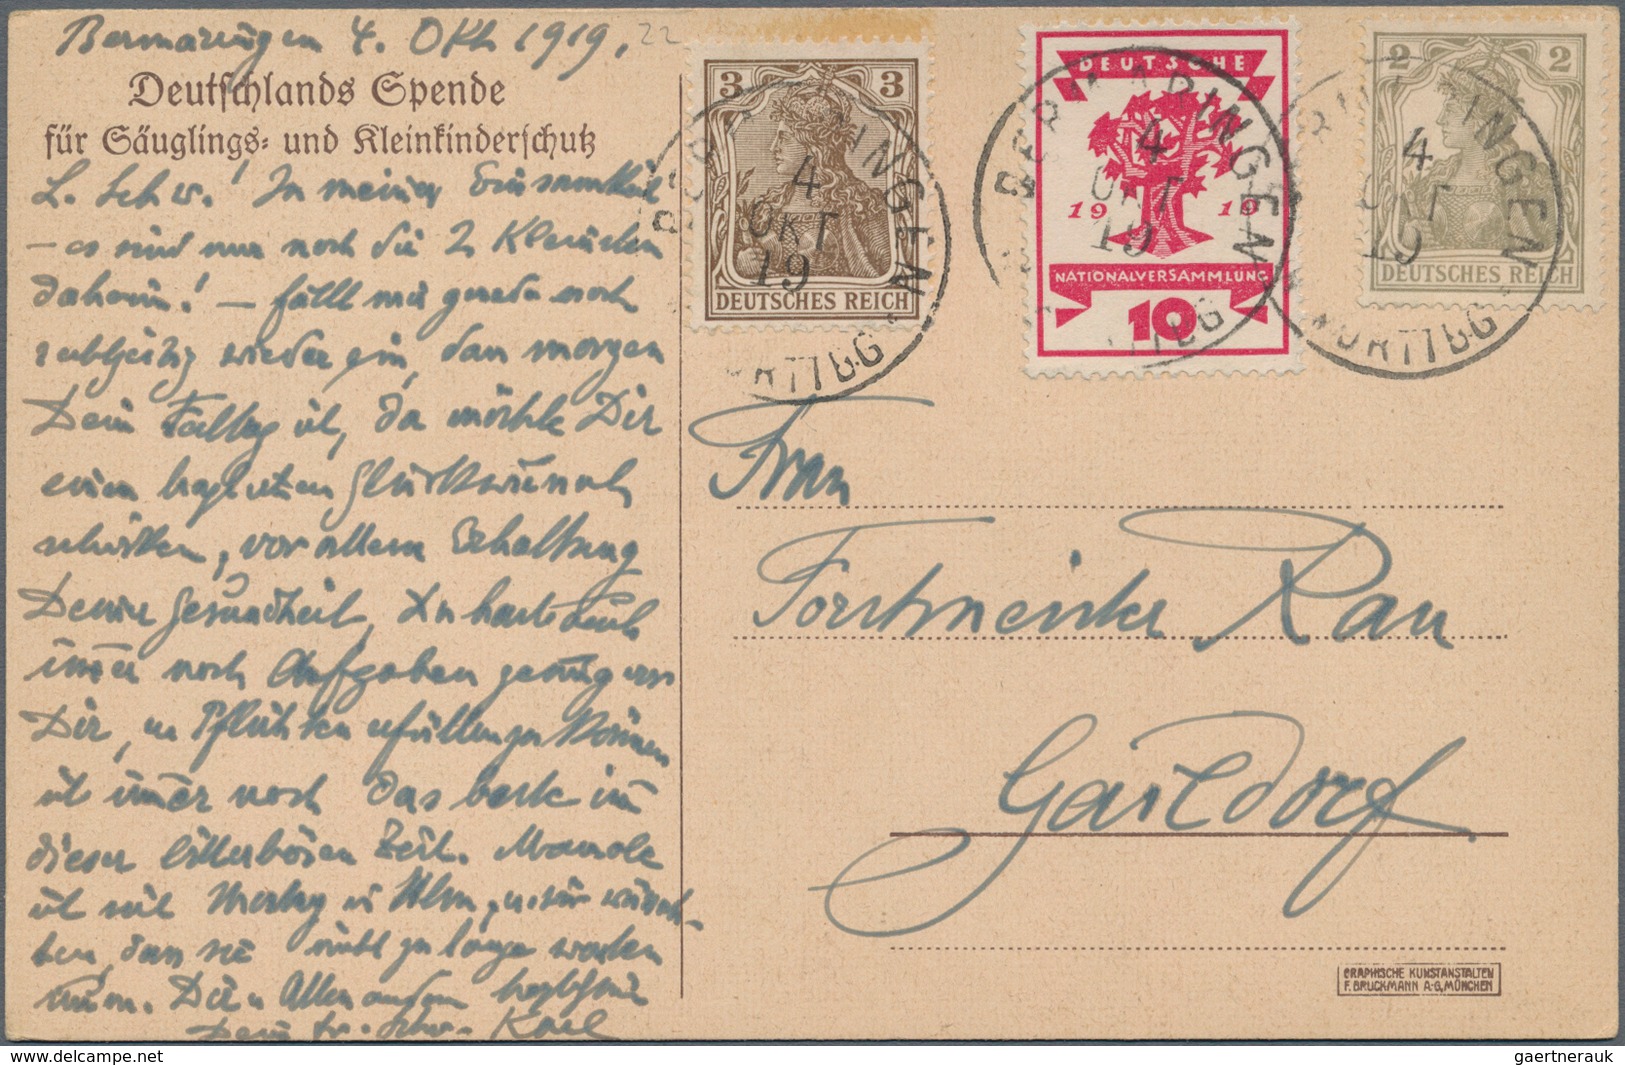 Bermaringen 4. Okt 1919.
22
Deutschlands Spende
für Säuglings- und Kleinkinderschutz
L. Schw.! In meiner Einsamkeit
– es sind nur noch die 2 Kleinchen
daheim! – fällt mir gerade noch
rechtzeitig wieder ein, dass morgen
Dein Festtag ist, da möchte Dir
einen herzlichen Glückwunsch
schicken, vor allem Erhaltung
Deiner Gesundheit, Du hast doch
immer noch Aufgaben genug vor
Dir, u. Pflichten erfüllen zu können
ist immer noch das beste in
dieser bitterbösen Zeit.
ist seit Montag in Ulm, u. wir
dass sie nicht zu lange warten
muss. Dir u. Allen andern herzl. Grüsse
Dein tr. Schw. Karl
3 3
DEUTSCHES REICH
DEUTSCHE
19 19
NATIONALVERSAMMLUNG
10
2 2
DEUTSCHES REICH
BERMARINGEN
4
OKT
19
WÜRTTBG.
BERMARINGEN
4
OKT
19
WÜRTTBG.
BERMARINGEN
4
OKT
19
WÜRTTBG.
Frau
Forstmeister Rau
Gaildorf
GRAPHISCHE KUNSTANSTALTEN
F. BRUCKMANN A-G, MÜNCHEN
https://www.delcampe.net
gaertnerauk